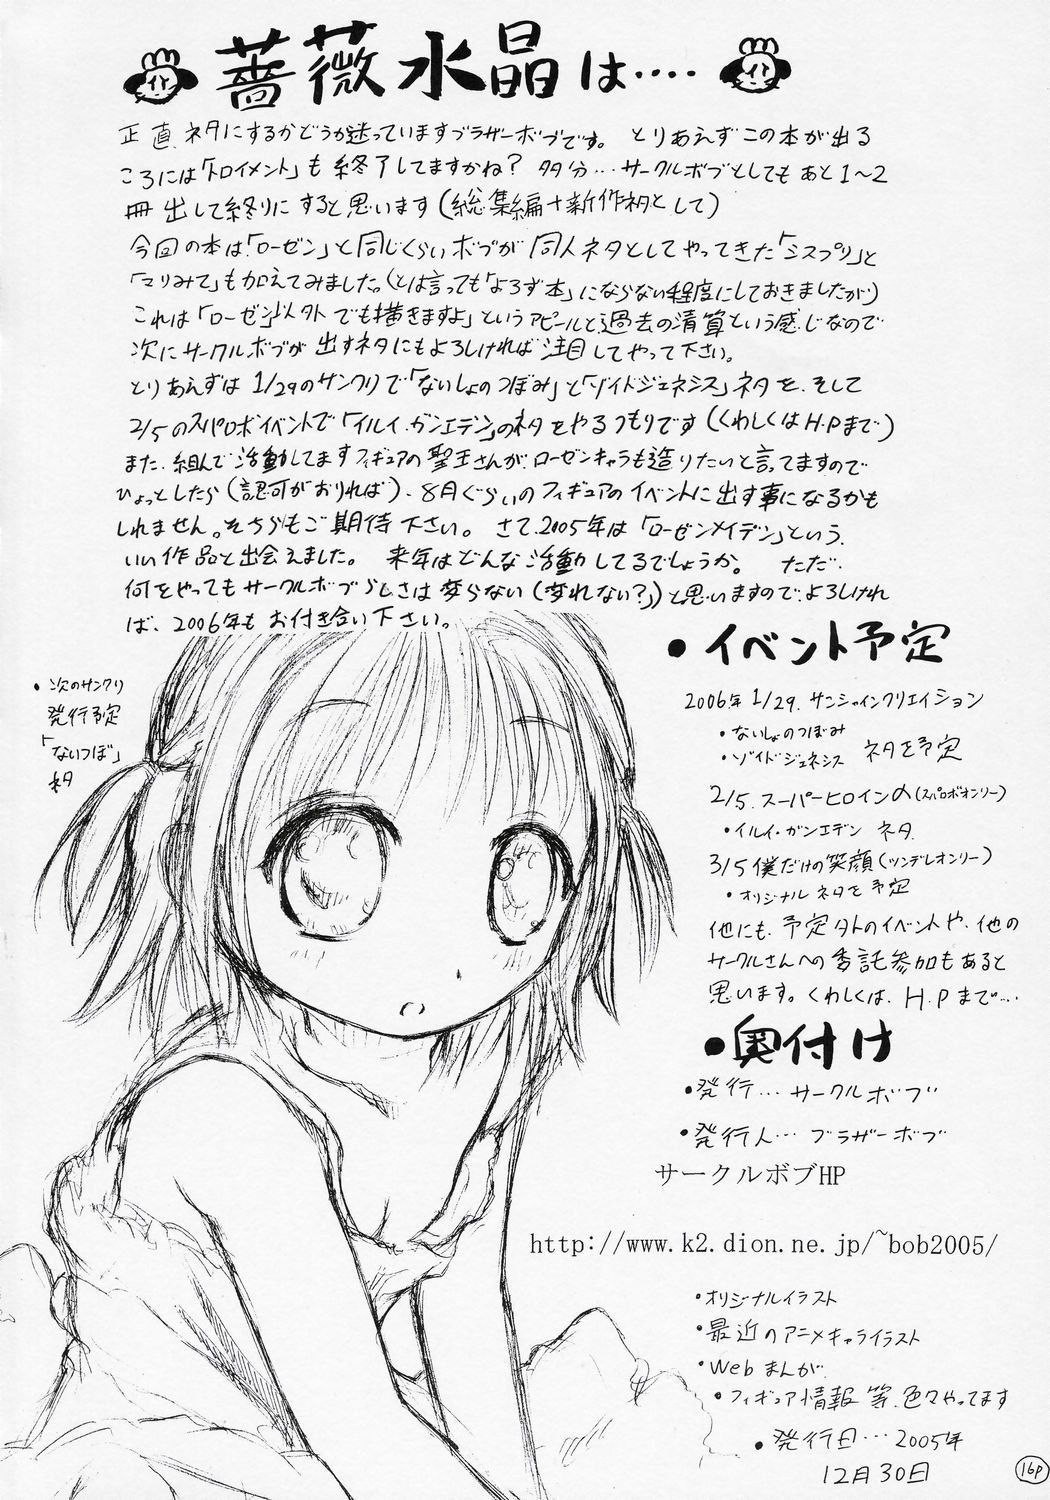 薔薇水晶は‥‥
正直、ネタにするかどうか迷っていますブラザーボブです。 とりあえずこの本が出る
ころには「トロイメント」も終了してますかね? 多分…サークルボブとしてもあと1〜2
冊出して終りにすると思います(総集編+新作ネタとして)
今回の本は「ローゼン」と同じくらいボブが同人ネタとしてやってきた「シスプリ」と
「マリみて」も加えてみました。(とは言っても「よろず本」にならない程度にしておきましたが)
これは「ローゼン」以外でも描きますよ」というアピールと、過去の清算という感じなので
次にサークルボブが出すネタにもよろしければ注目してやって下さい。
とりあえずは1/29のサンクリで「ないしょのつぼみ」と「ゾイドジェネシス」ネタを、そして
2/5のスパロボイベントで「イルイ・ガンエデン」のネタをやるつもりです(くわしくはH.Pまで)
また、組んで活動してますフィギュアの聖王さんが、ローゼンキャラも造りたいと言ってますので
ひょっとしたら(認可がおりれば)、8月ぐらいのフィギュアのイベントに出す事になるかも
しれません。そちらもご期待下さい。 さて、2005年は「ローゼンメイデン」という
いい作品と出会えました。 来年はどんな活動してるでしょうか。 ただ、
何をやってもサークルボブらしさは変らない(変れない?)と思いますので、よろしけれ
ば、2006年もお付き合い下さい。
・次のサンクリ
発行予定
「ないつぼ」
ネタ
・イベント予定
2006年1/29. サンシャインクリエイション
・ないしょのつぼみ
・ゾイドジェネシス ネタを予定
2/5. スーパーヒロインの(スパロボオンリー)
・イルイ・ガンエデン ネタ
3/5 僕だけの笑顔(ツンデレオンリー)
・オリジナルネタを予定
他にも、予定外のイベントや、他の
サークルさんへの委託参加もあると
思います。くわしくは、H.Pまで…
・奥付け
・発行…サークルボブ
・発行人…ブラザーボブ
サークルボブHP
http://www.k2.dion.ne.jp/~bob2005/
・オリジナルイラスト
・最近のアニメキャライラスト
・Webまんが
・フィギュア情報等、色々やってます
・発行日…2005年
12月30日
16P